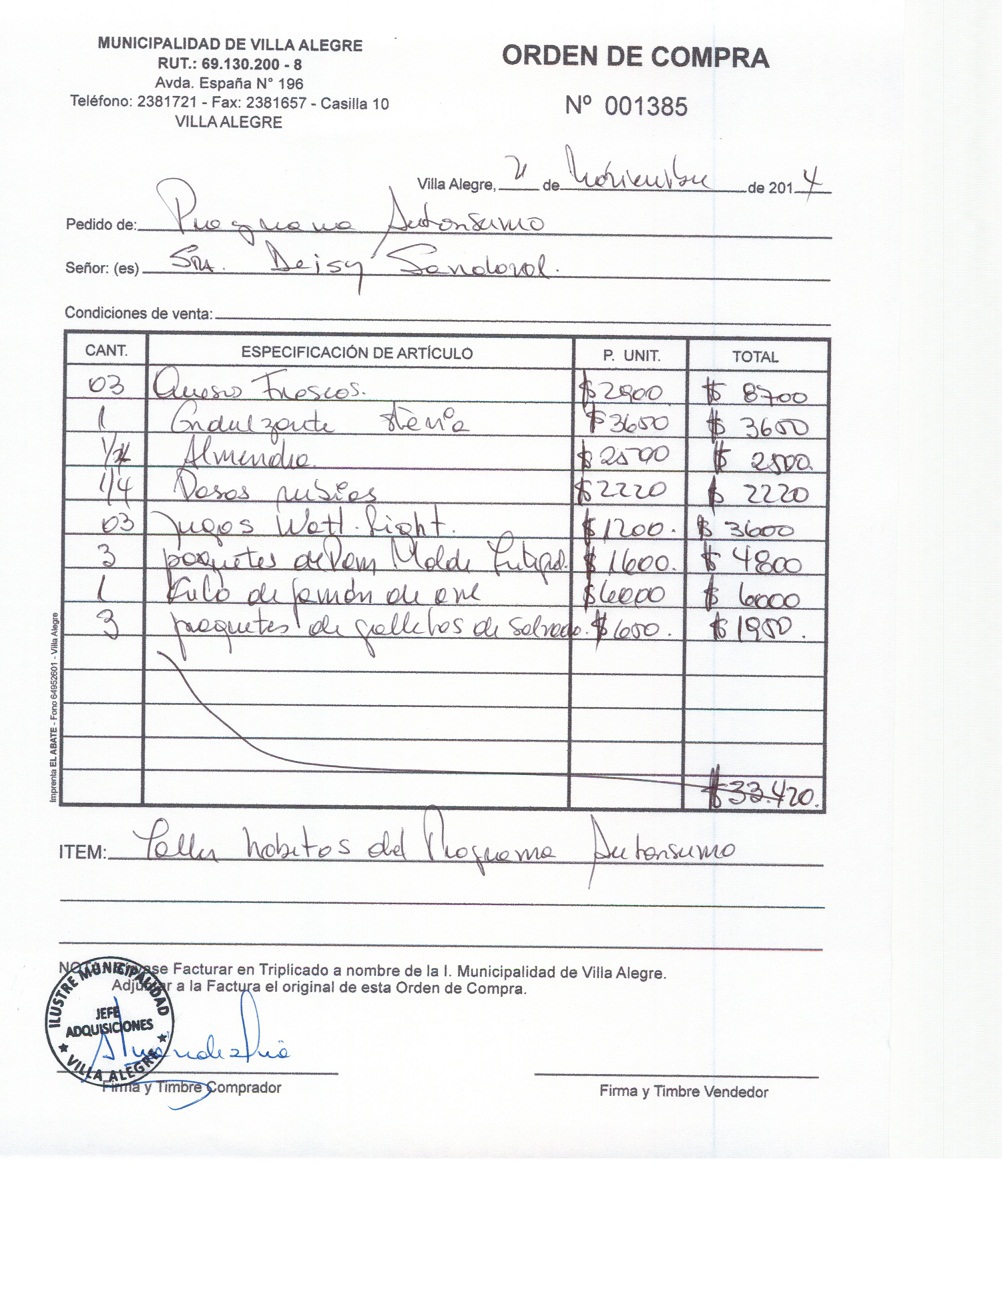 MUNICIPALIDAD DE VILLA ALEGRE
RUT.: 69.130.200 - 8
Avda. España N° 196
Teléfono: 2381721 - Fax: 2381657 - Casilla 10
VILLA ALEGRE
ORDEN DE COMPRA
Nº 001385
Villa Alegre, de Noviembre de 2014
Pedido de: Programa Autonsumo
Señor: (es) Sra. Deisy Sandoval.
Condiciones de venta:
CANT. ESPECIFICACIÓN DE ARTÍCULO P. UNIT. TOTAL
03 Queso Frescos. $2900 $ 8700
1 Endulzante $3650 $ 3650
Almendra $2500 $ 2500.
1/4 Pasas rubias $2220 $ 2220
03 Jugos Watt. Light. $1200. $ 3600
3 paquetes de Pan Molde $1600. $ 4800
1 Kilo de jamón de ave $6000 $ 6000
3 paquetes de galletas de Salvado. $650. $1950.
$33.420.
ITEM: Taller habitos del Programa Autonsumo
Facturar en Triplicado a nombre de la I. Municipalidad de Villa Alegre.
Adjuntar a la Factura el original de esta Orden de Compra.
ILUSTRE MUNICIPALIDAD
JEFE
ADQUISICIONES
★ VILLA ALEGRE ★
Firma y Timbre Comprador
Firma y Timbre Vendedor
Imprenta EL ABATE - Fono 64952601 - Villa Alegre